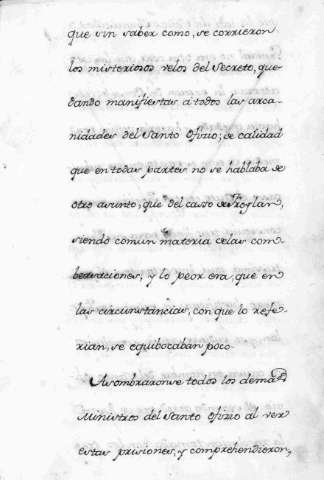 que sin saber como, se corrieron
los misteriosos velos del Secreto, que
dando manifiestas a todos las arca
nidades del Santo Ofizio; de calidad
que en todas partes no se hablaba de
otro asunto, que del casso de Froylán,
siendo comun materia de las com
bersaciones, y lo peor era, que en
las circunstancias, con que lo refe
rian, se equibocaban poco.
Asombraronse todos los demas
Ministros del Santo Ofizio al ver
estas prisiones, y comprehendieron,